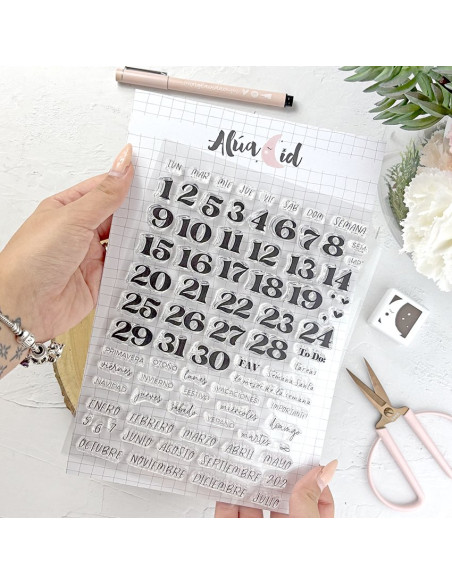 Alúa Cid
LUN MAR MIE JUE VIE SÁB DOM SEMANA
1 2 5 3 4 6 7 8
9 10 11 12 13
15 16 17 18 14
20 21 22 23 19
25 26 27 28 24
29 31 30 FAV To Do:
PRIMAVERA OTOÑO lunes Semana Santa
viernes INVIERNO lo mejor de la semana
NAVIDAD FESTIVO VACACIONES IMPORTANTE
jueves sábado VERANO miércoles domingo
ENERO FEBRERO MARZO ABRIL martes
5 6 7 JUNIO AGOSTO SEPTIEMBRE MAYO 202
OCTUBRE NOVIEMBRE DICIEMBRE JULIO